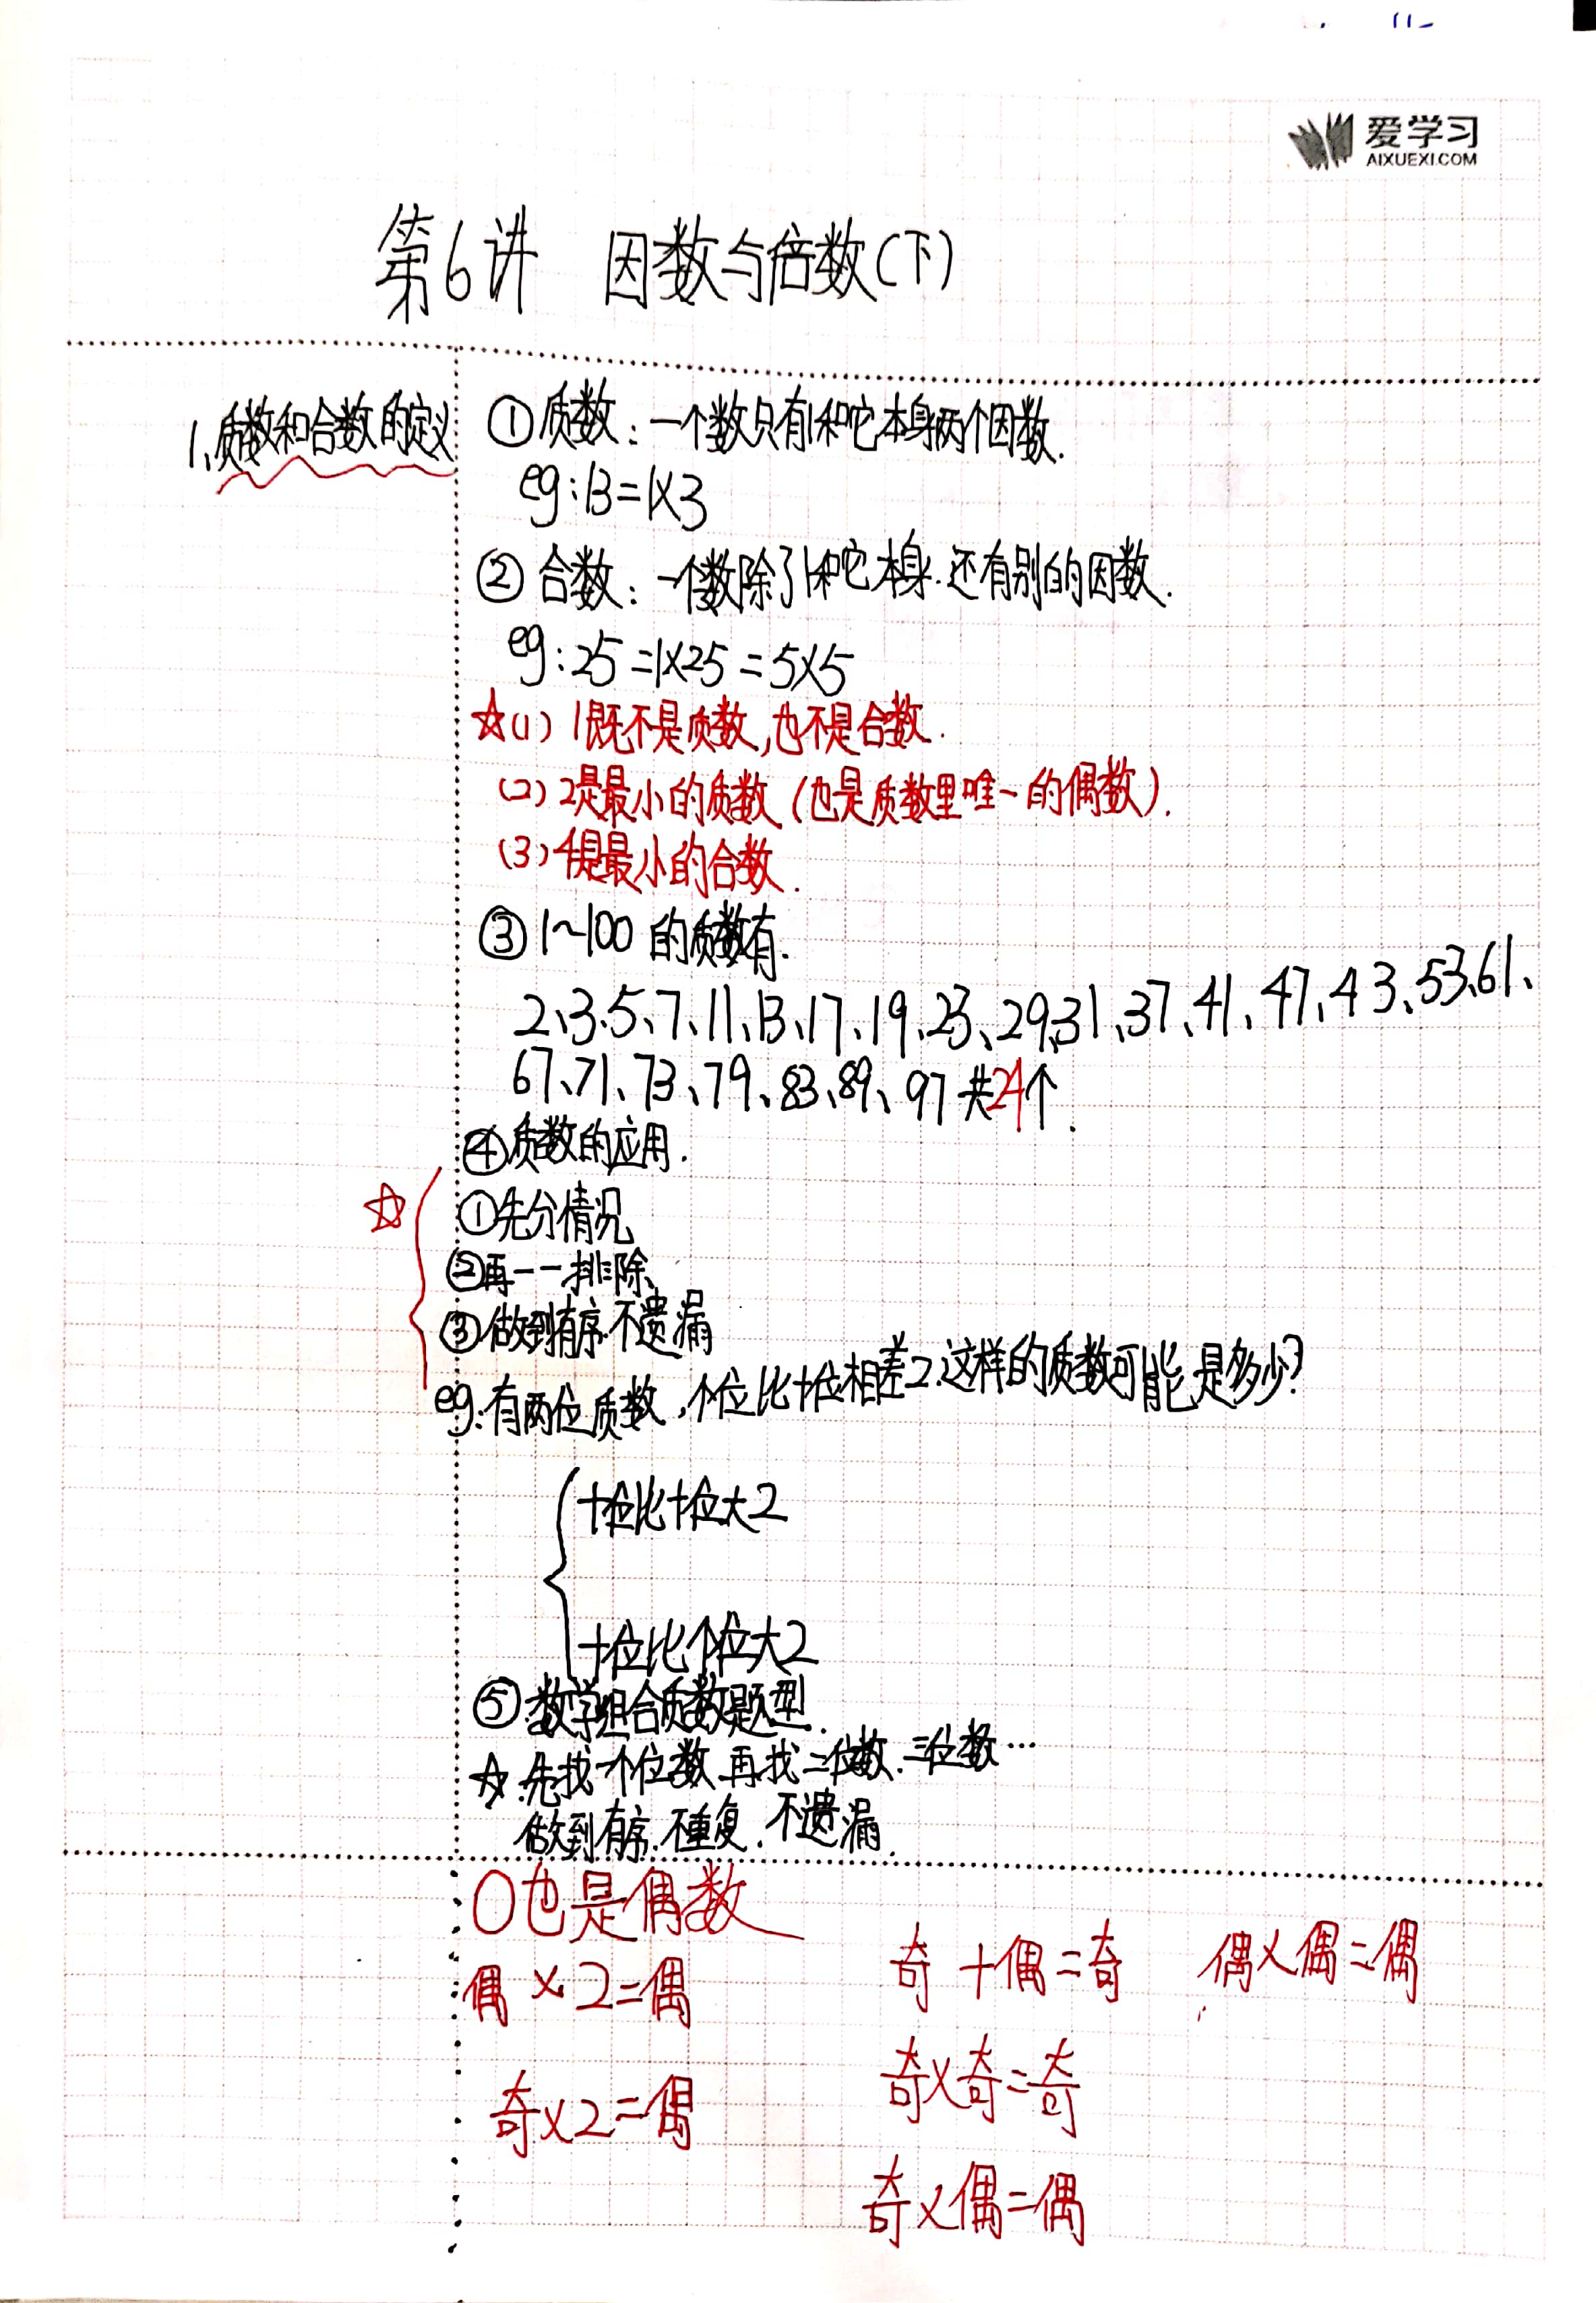 爱学习
AIXUEXI.COM
第6讲 因数与倍数(下)
1、质数和合数的定义
①质数：一个数只有1和它本身两个因数.
eg:13=1×3
②合数：一个数除了1和它本身.还有别的因数.
eg:25=1×25=5×5
☆(1) 1既不是质数,也不是合数.
(2) 2是最小的质数(也是质数里唯一的偶数).
(3) 4是最小的合数.
③1~100 的质数有.
2、3、5、7、11、13、17、19、23、29、31、37、41、47、43、53、61、
67、71、73、79、83、89、97 共24个.
④质数的应用.
☆ ①先分情况
②再一一排除、
③做到有序.不遗漏
eg:有两位质数,个位比十位相差2.这样的质数可能是多少?
十位比十位大2
十位比个位大2
⑤数学组合质数题型.
☆:先找一个位数.再找二位数.三位数…
做到有序.不重复.不遗漏.
0也是偶数
偶×2=偶
奇+偶=奇 偶×偶=偶
奇×奇=奇
奇×2=偶
奇×偶=偶